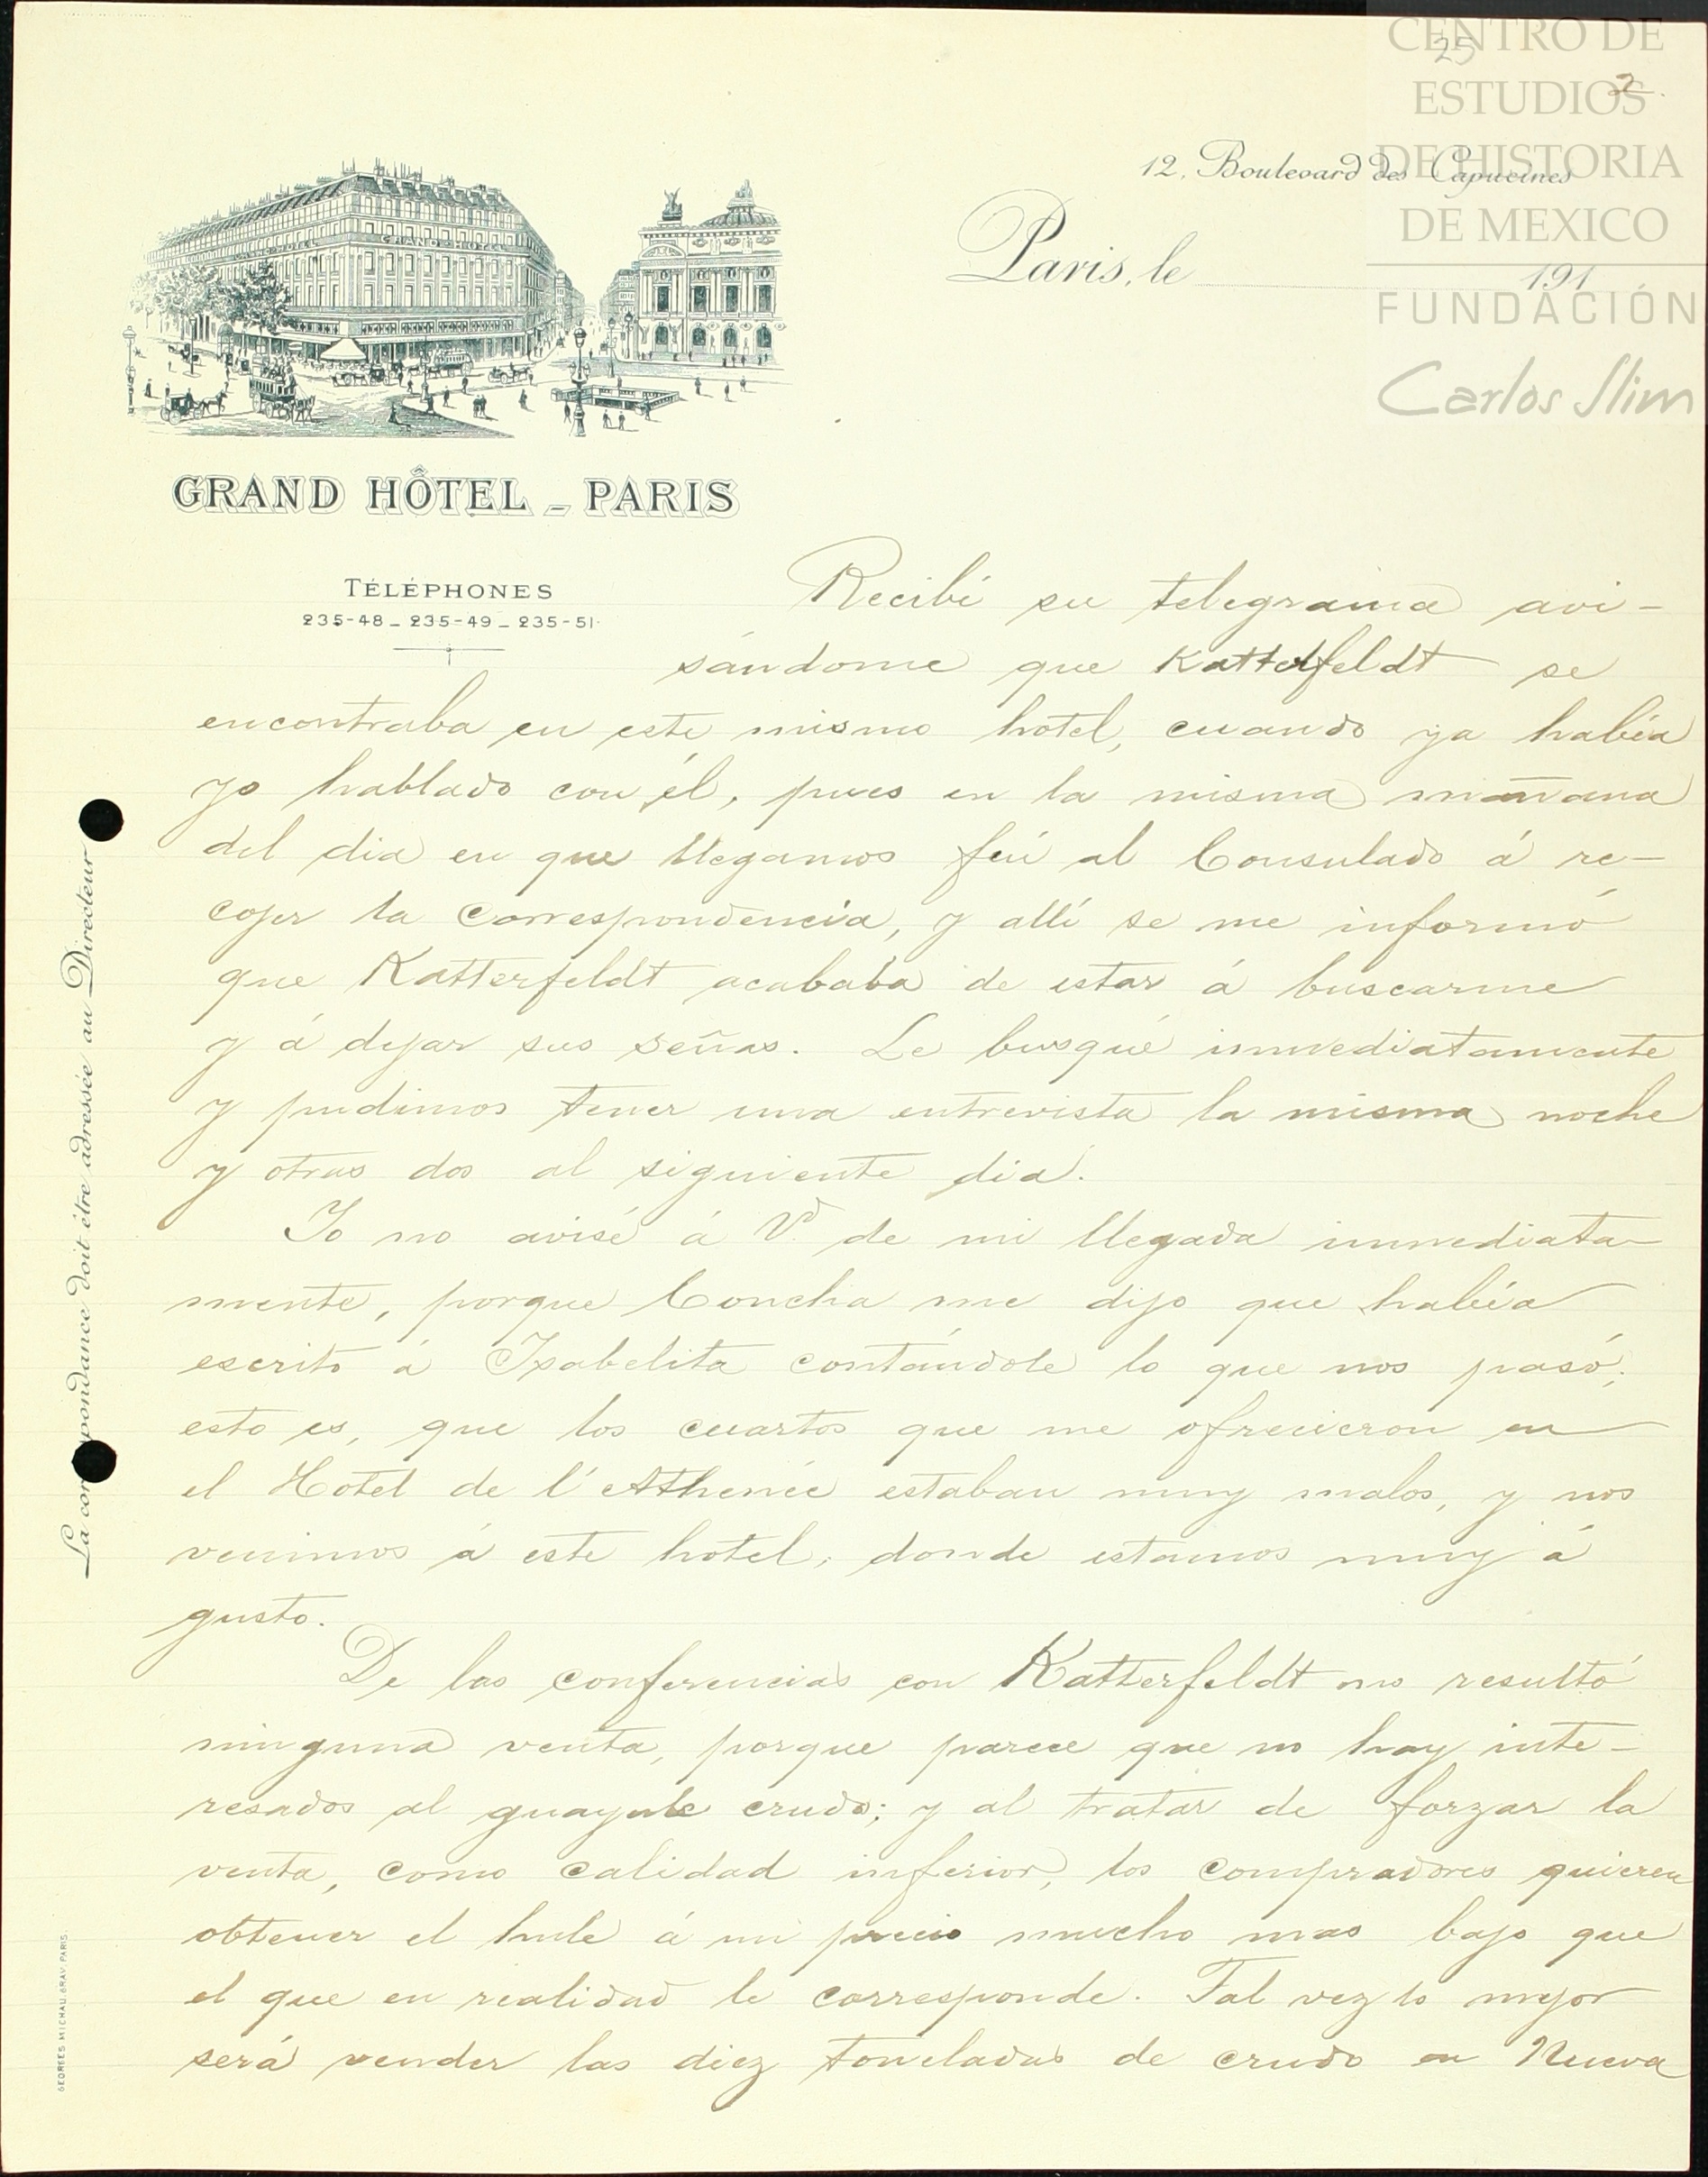 CENTRO DE
ESTUDIOS
DE HISTORIA
DE MEXICO
FUNDACIÓN
Carlos Slim
25
2.
12, Boulevard des Capucines
Paris, le 191
GRAND HOTEL
GRAND HÔTEL - PARIS
TÉLÉPHONES
235-48 - 235-49 - 235-51
La correspondance doit être adressée au Directeur
GEORGES MICHAU. GRAV. PARIS.
Recibí su telegrama avi-
sándome que Katterfeldt se
encontraba en este mismo hotel, cuando ya había
yo hablado con él, pues en la misma mañana
del dia en que llegamos fuí al Consulado á re-
cojer la correspondencia, y allí se me informó
que Katterfeldt acababa de estar á buscarme
y á dejar sus señas. Le busqué inmediatamente
y pudimos tener una entrevista la misma noche
y otras dos al siguiente dia.
Yo no avisé á Vd. de mi llegada inmediata-
mente, porque Concha me dijo que había
escrito á Isabelita contándole lo que nos pasó;
esto es, que los cuartos que me ofrecieron en
el Hotel de l'Athenée estaban muy malos, y nos
venimos á este hotel, donde estamos muy á
gusto.
De las conferencias con Katterfeldt no resultó
ninguna venta, porque parece que no hay inte-
resados al guayule crudo; y al tratar de forzar la
venta, como calidad inferior, los compradores quieren
obtener el hule á un precio mucho mas bajo que
el que en realidad le corresponde. Tal vez lo mejor
será vender las diez toneladas de crudo en Nueva